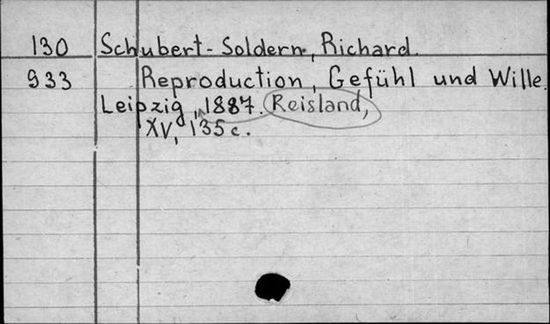 130 Schubert-Soldern, Richard.
933 Reproduction, Gefühl und Wille.
Leipzig, 1887. Reisland,
XV, 135 c.